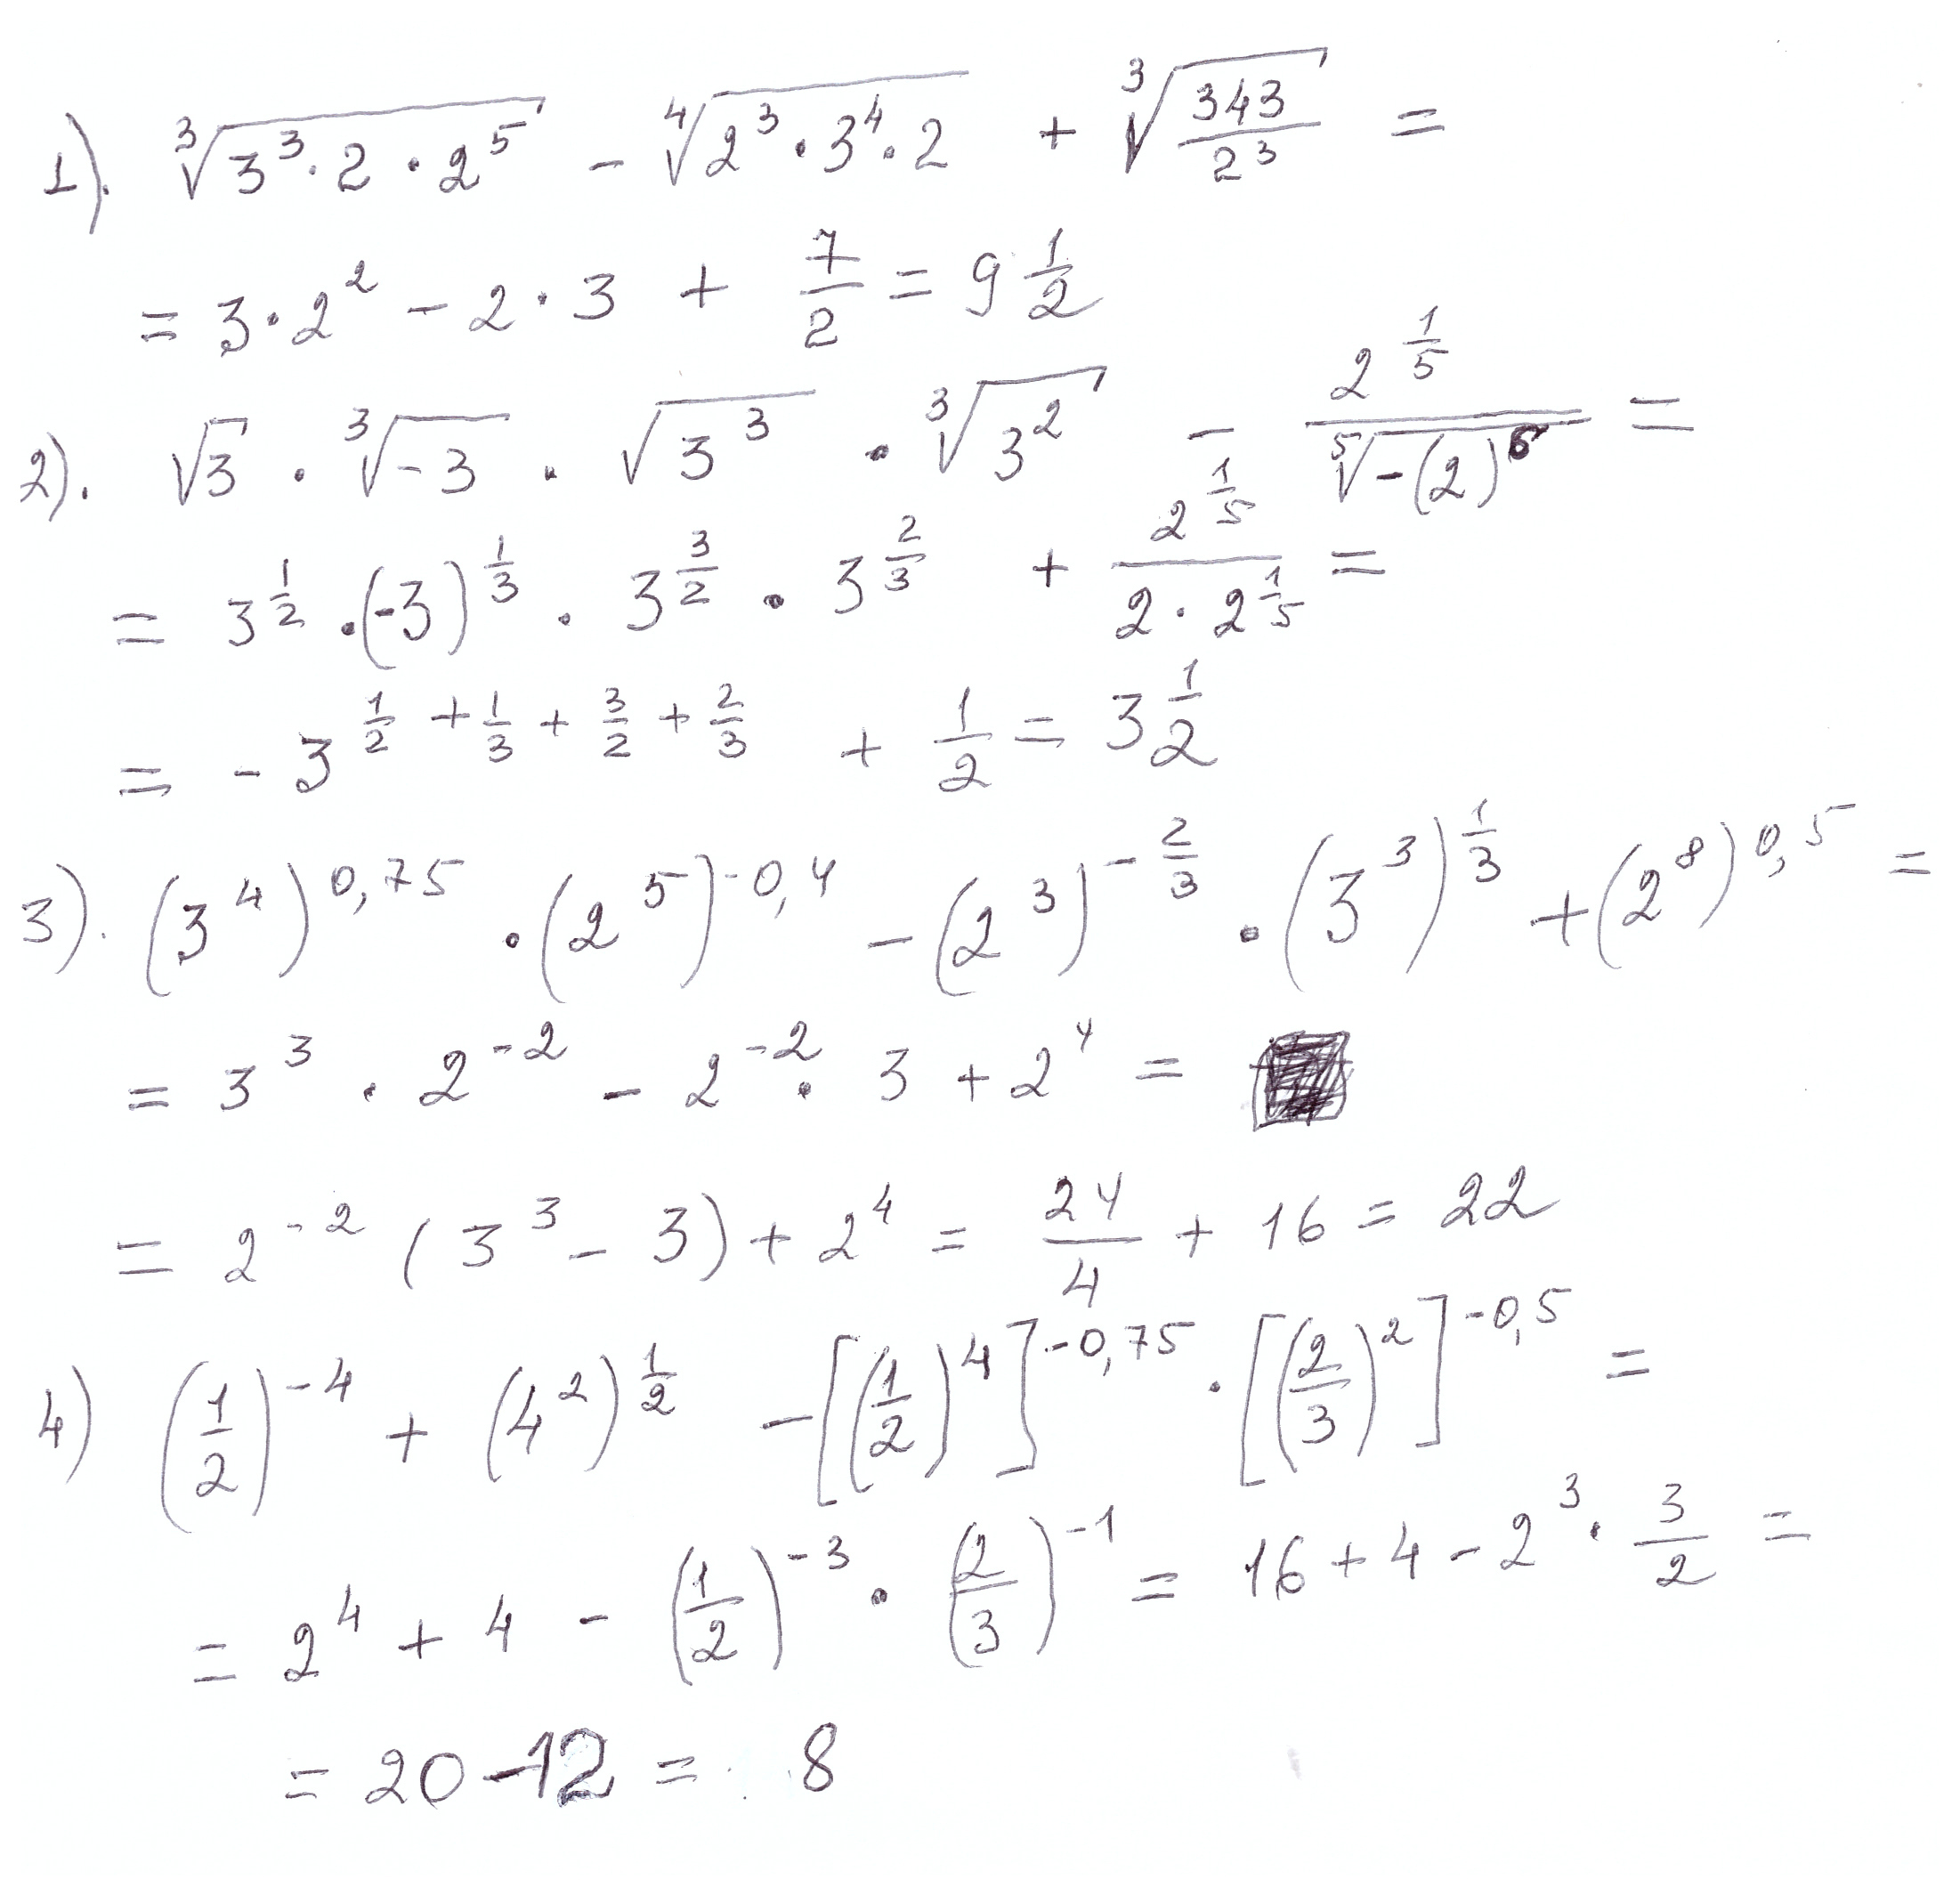 1). ∛(3³·2·2⁵) - ∜(2³·3⁴·2) + ∛(343/2³) =
= 3·2² - 2·3 + 7/2 = 9 1/2
2). √3 · ∛(-3) · √(3³) · ∛(3²) - 2^(1/5) / ⁵√(-(2)⁶) =
= 3^(1/2) · (-3)^(1/3) · 3^(3/2) · 3^(2/3) + 2^(1/5) / (2·2^(1/5)) =
= - 3^(1/2 + 1/3 + 3/2 + 2/3) + 1/2 = 3 1/2
3). (3⁴)^(0,75) · (2⁵)^(-0,4) - (2³)^(-2/3) · (3³)^(1/3) + (2⁸)^(0,5) =
= 3³ · 2⁻² - 2⁻² · 3 + 2⁴ =
= 2⁻² (3³ - 3) + 2⁴ = 24/4 + 16 = 22
4) (1/2)⁻⁴ + (4²)^(1/2) - [(1/2)⁴]^(-0,75) · [(2/3)²]^(-0,5) =
= 2⁴ + 4 - (1/2)⁻³ · (2/3)⁻¹ = 16 + 4 - 2³ · 3/2 =
= 20 - 12 = 8